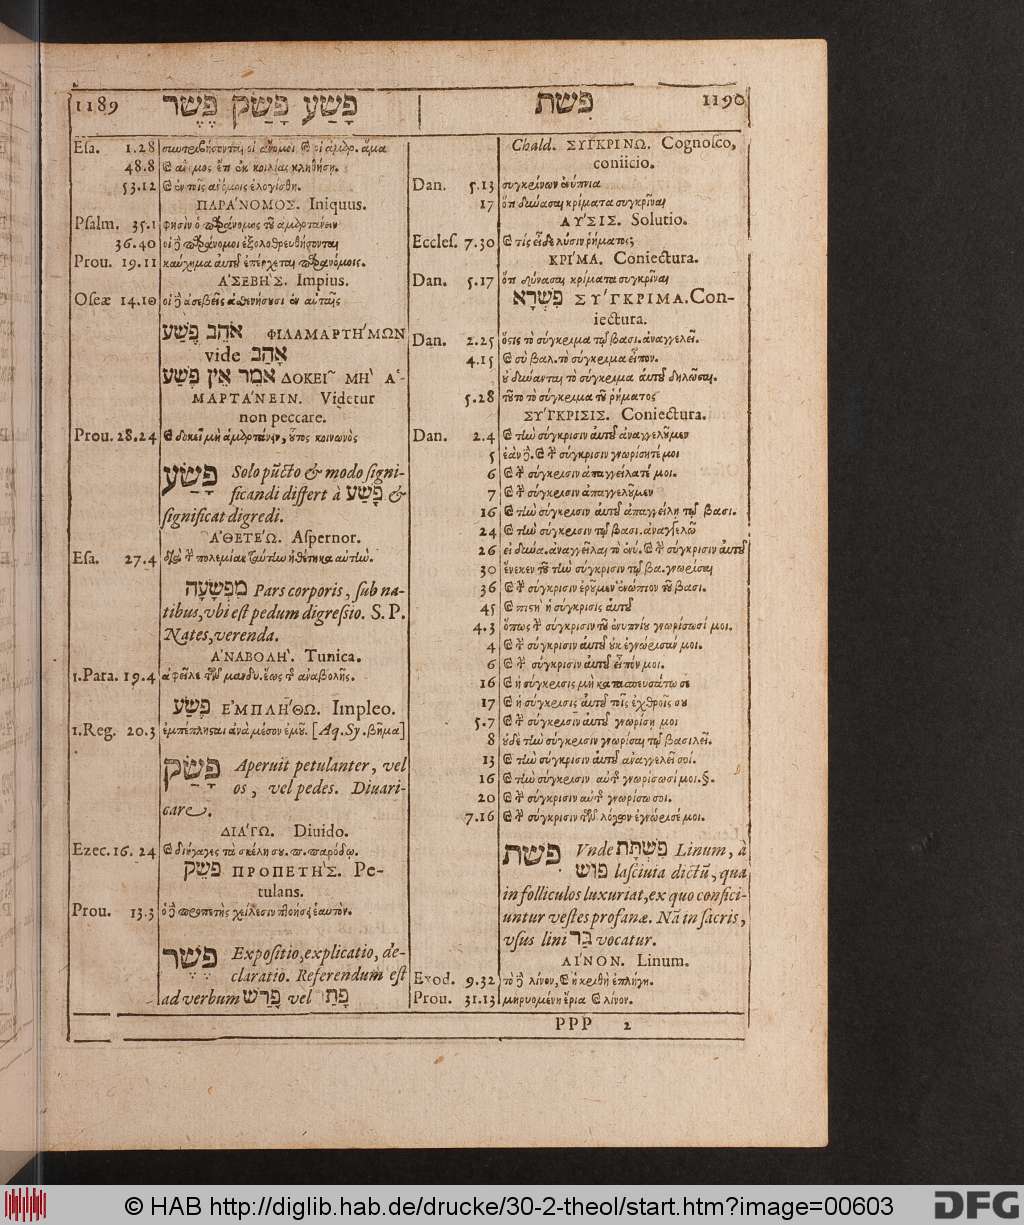 1189 פָּשַׂע פָּשַׂק פֶּשֶׁר
Esa. 1.28 συντριβήσονται οἱ ἄνομοι καὶ οἱ ἁμαρ. ἅμα
48.8 καὶ ἄνομος ἔτι ἐκ κοιλίας κληθήσῃ.
53.12 καὶ ἐν τοῖς ἀνόμοις ἐλογίσθη.
ΠΑΡΑΝΟΜΟΣ. Iniquus.
Psalm. 35.1 φησὶν ὁ παράνομος τοῦ ἁμαρτάνειν
36.40 οἱ δὲ παράνομοι ἐξολοθρευθήσονται
Prou. 19.11 καύχημα αὐτοῦ ἐπέρχεται παρανόμοις.
ΑΣΕΒΗΣ. Impius.
Oseæ 14.10 οἱ δὲ ἀσεβεῖς ἀσθενήσουσι ἐν αὐταῖς
אֹהֵב פֶּשַׁע ΦΙΛΑΜΑΡΤΗΜΩΝ
vide אָהַב
אֹמֵר אֵין פֶּשַׁע ΔΟΚΕΙ ΜΗ Α-
ΜΑΡΤΑΝΕΙΝ. Videtur
non peccare.
Prou. 28.24 καὶ δοκεῖ μὴ ἁμαρτάνειν, οὗτος κοινωνὸς
פָּשַׂע Solo pūcto & modo signi-
ficandi differt à פָּשַׁע &
significat digredi.
ΑΘΕΤΕΩ. Aspernor.
Esa. 27.4 διὰ τὴν πολεμίαν ταύτην ἠθέτηκα αὐτήν.
מִפְשָׂעָה Pars corporis, sub na-
tibus, vbi est pedum digressio. S. P.
Nates, verenda.
ΑΝΑΒΟΛΗ. Tunica.
1.Para. 19.4 ἀφεῖλε τῶν μανδυ. ἕως τῆς ἀναβολῆς.
פֶּשַׂע ΕΜΠΛΗΘΩ. Impleo.
1.Reg. 20.3 ἐμπέπλησται ἀνὰ μέσον ἐμοῦ. [Aq. Sy. βῆμα]
פָּשַׂק Aperuit petulanter, vel
os, vel pedes. Diuari-
care.
ΔΙΑΓΩ. Diuido.
Ezec. 16. 24 καὶ διήγαγες τὰ σκέλη σου. π. παρόδῳ.
פֹּשֵׂק ΠΡΟΠΕΤΗΣ. Pe-
tulans.
Prou. 13.3 ὁ δὲ προπετὴς χείλεσιν πτοήσει ἑαυτόν.
פֶּשֶׁר Expositio, explicatio, de-
claratio. Referendum est
ad verbum פָּרַשׁ vel פָּתַר
פִּשֵׁת 1190
Chald. ΣΥΓΚΡΙΝΩ. Cognosco,
coniicio.
Dan. 5.13 συγκρίνων ἐνύπνια
17 ὅτι δύνασαι κρίματα συγκρῖναι
ΛΥΣΙΣ. Solutio.
Eccles. 7.30 καὶ τίς εἶδε λύσιν ῥήματος;
ΚΡΙΜΑ. Coniectura.
Dan. 5.17 ὅτι δύνασαι κρίματα συγκρῖναι
פִּשְׁרָא ΣΥΓΚΡΙΜΑ. Con-
iectura.
Dan. 2.25 ὅστις τὸ σύγκριμα τῷ βασι. ἀναγγελεῖ.
4.15 καὶ σὺ βαλ. τὸ σύγκριμα εἶπον.
οὐ δύνανται τὸ σύγκριμα αὐτοῦ δηλῶσαι.
5.28 τοῦτο τὸ σύγκριμα τοῦ ῥήματος
ΣΥΓΚΡΙΣΙΣ. Coniectura.
Dan. 2.4 καὶ τὴν σύγκρισιν αὐτοῦ ἀναγγελοῦμεν
5 ἐὰν δὲ. καὶ τὴν σύγκρισιν γνωρίσητέ μοι
6 καὶ τὴν σύγκρισιν ἀπαγγείλατέ μοι.
7 καὶ τὴν σύγκρισιν ἀπαγγελοῦμεν
16 καὶ τὴν σύγκρισιν αὐτοῦ ἀπαγγείλῃ τῷ βασι.
24 καὶ τὴν σύγκρισιν τῷ βασι. ἀναγγελῶ
26 εἰ δύνα. ἀναγγεῖλαι τὸ ἐνύ. καὶ τὴν σύγκρισιν αὐτοῦ
30 ἕνεκεν τοῦ τὴν σύγκρισιν τῷ βα. γνωρίσαι
36 καὶ τὴν σύγκρισιν ἐροῦμεν ἐνώπιον τοῦ βασι.
45 καὶ πιστὴ ἡ σύγκρισις αὐτοῦ
4.3 ὅπως τὴν σύγκρισιν τοῦ ἐνυπνίου γνωρίσωσί μοι.
4 καὶ τὴν σύγκρισιν αὐτοῦ οὐκ ἐγνώρισάν μοι.
6 καὶ τὴν σύγκρισιν αὐτοῦ εἶπόν μοι.
16 καὶ ἡ σύγκρισις μὴ κατασπευσάτω σε
17 καὶ ἡ σύγκρισις αὐτοῦ τοῖς ἐχθροῖς σου
5.7 καὶ τὴν σύγκρισιν αὐτοῦ γνωρίσῃ μοι
8 οὐδὲ τὴν σύγκρισιν γνωρίσαι τῷ βασιλεῖ.
13 καὶ τὴν σύγκρισιν αὐτοῦ ἀναγγελεῖ σοί.
16 καὶ τὴν σύγκρισιν αὐτῆς γνωρίσωσί μοι.§.
20 καὶ τὴν σύγκρισιν αὐτῆς γνωρίσω σοι.
7.16 καὶ τὴν σύγκρισιν τῶν λόγων ἐγνώρισέ μοι.
פִּשֵׁת Vnde פִּשְׁתָּה Linum, à
פוּשׁ lasciuia dictū, qua
in folliculos luxuriat, ex quo confici-
untur vestes profanæ. Nā in sacris,
vsus lini בַּד vocatur.
ΛΙΝΟΝ. Linum.
Exod. 9.32 τὸ δὲ λίνον, καὶ ἡ κριθὴ ἐπλήγη.
Prou. 31.13 μηρυομένη ἔρια καὶ λίνον.
PPP 2
© HAB http://diglib.hab.de/drucke/30-2-theol/start.htm?image=00603
DFG